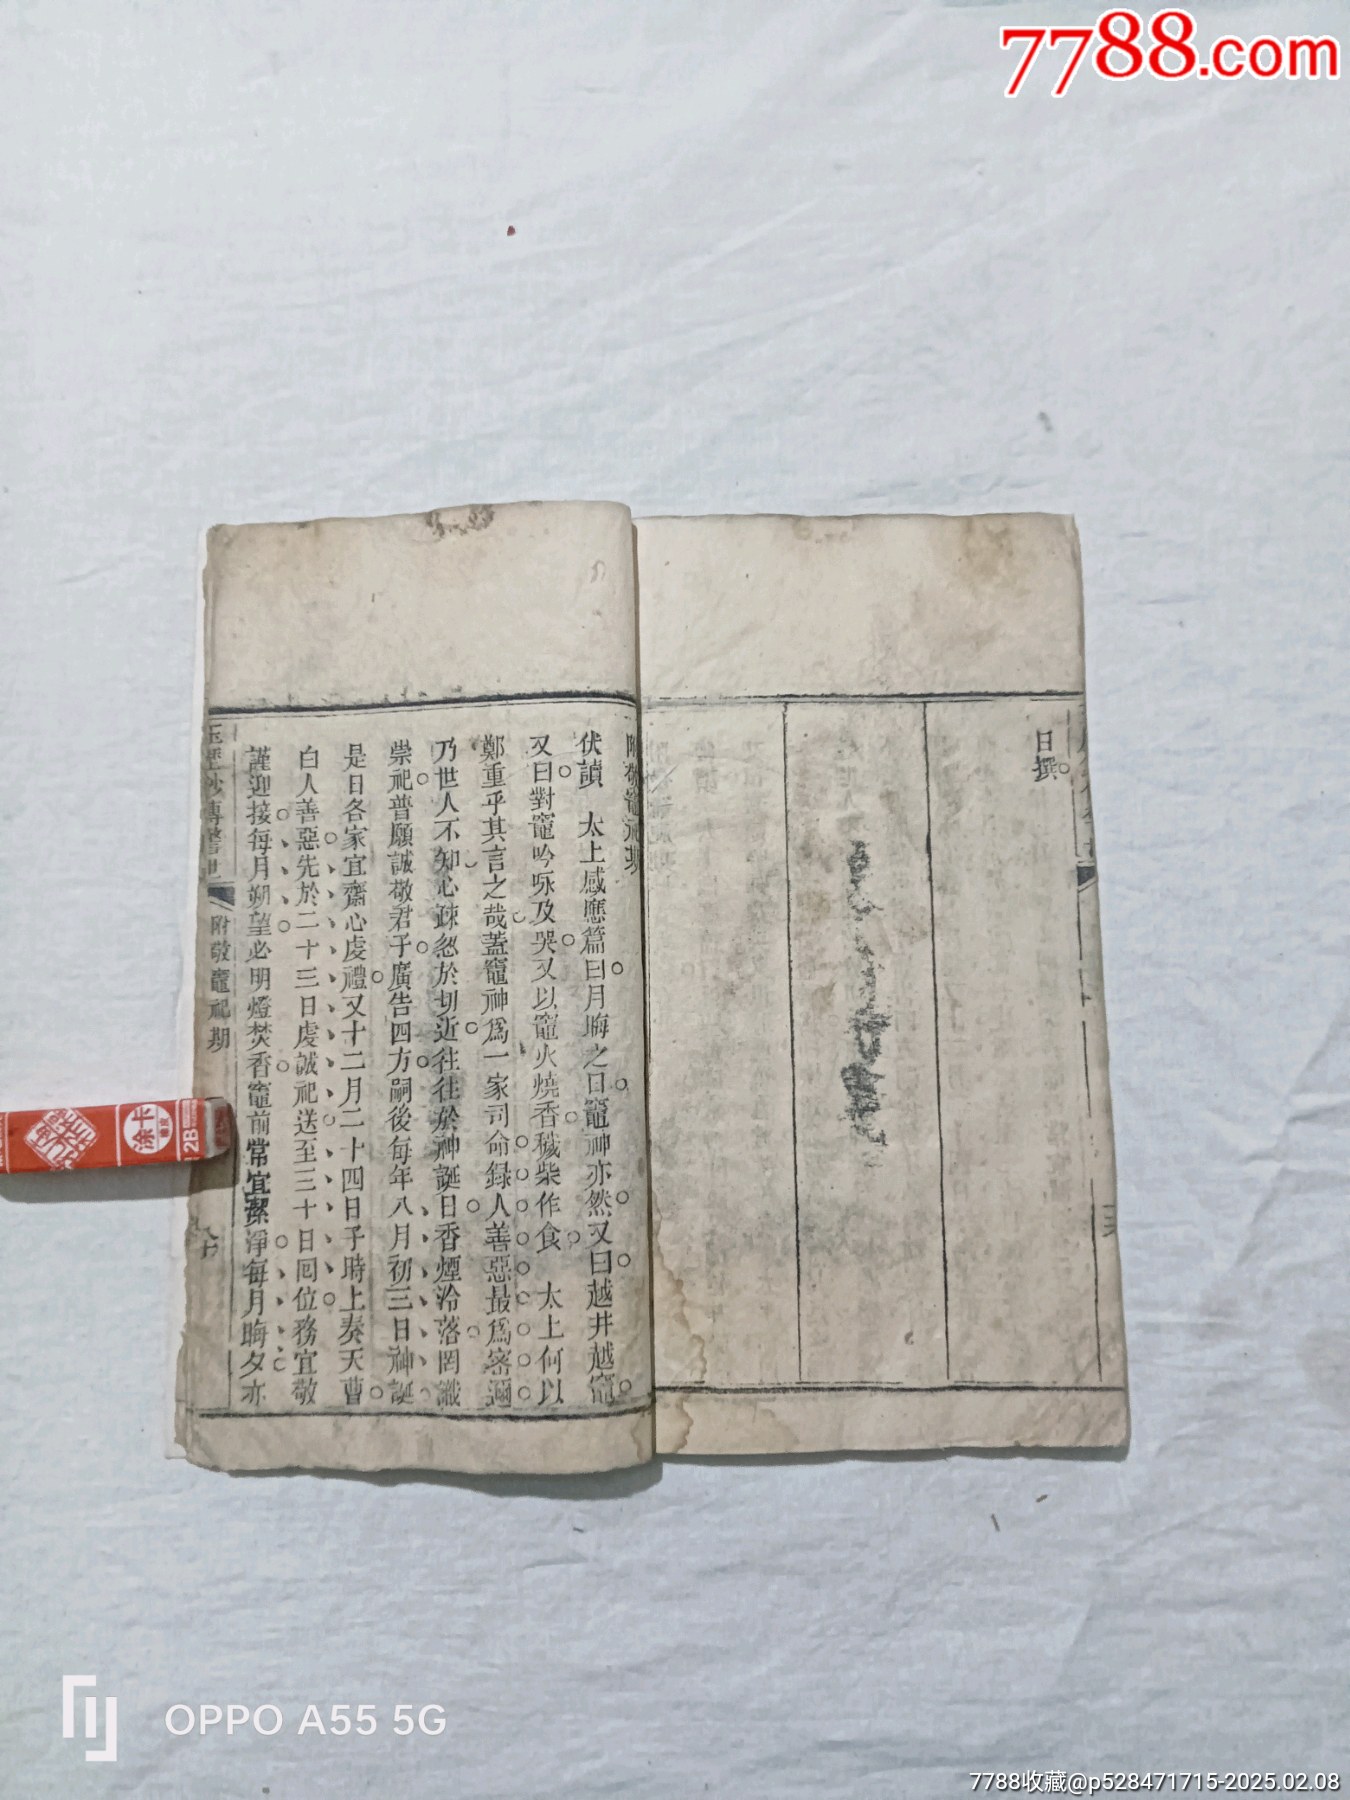 7788.com
日撰
附敬竈祀期
伏讀 太上感應篇曰月晦之日竈神亦然又曰越井越竈
又曰對竈吟咏及哭又以竈火燒香穢柴作食 太上何以
鄭重乎其言之哉蓋竈神爲一家司命録人善惡最爲密邇
乃世人不知心疎忽於切近往往於神誕日香煙冷落罔識
崇祀普願誠敬君子廣告四方嗣後每年八月初三日神誕
是日各家宜齋心虔禮又十二月二十四日子時上奏天曹
白人善惡先於二十三日虔誠祀送至三十日囘位務宜敬
謹迎接每月朔望必明燈焚香竈前常宜潔淨每月晦夕亦
玉歷鈔傳警世
附敬竈祀期
涂卡
2B
OPPO A55 5G
7788收藏@p528471715-2025.02.08